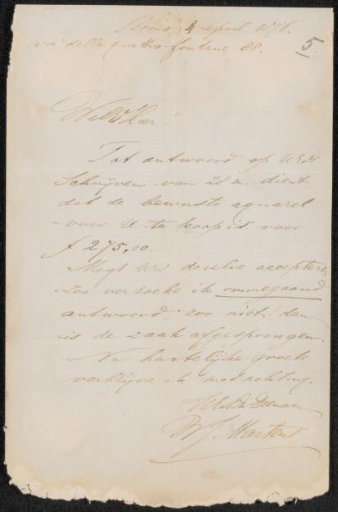 Roma 4 april 1876.
via delle quatro fontane 88.
5
WelEd Heer
Tot antwoord op UEd
schrijven van 28 m. dient
dat de bewuste aquarel
voor U te koop is voor
f 275,00.
Mogt UE dezelve accepteren,
zoo verzoeke ik ommegaand
antwoord zoo niet, dan
is de zaak afgesprongen.
Na hartelijke groete
verblijve ik met achting.
UEd Dr Dienaar
W J Martens